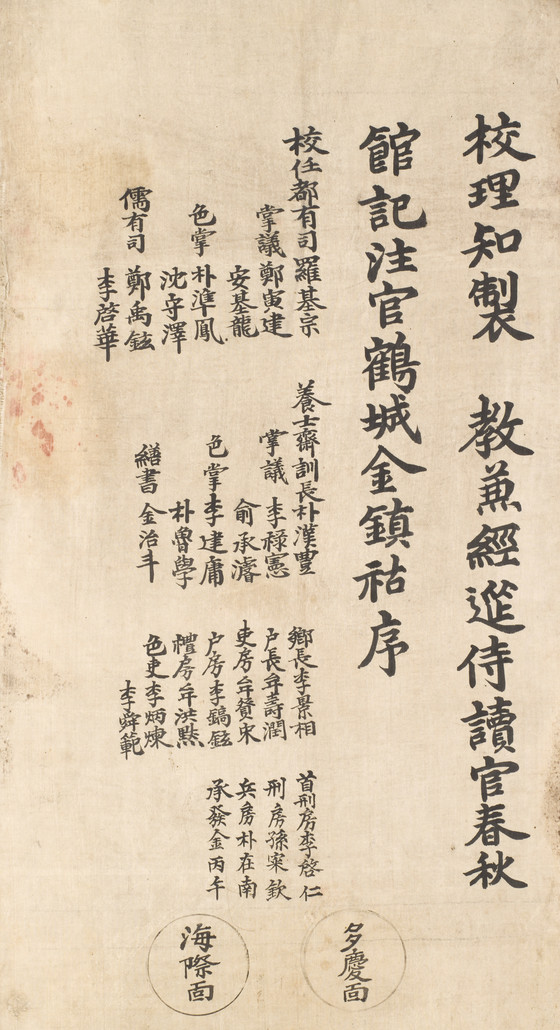 校理知製 教兼經筵侍讀官春秋
館記注官鶴城金鎮祜序
校任都有司羅基宗
掌議鄭寅建
安基龍
色掌朴準鳳
沈守澤
儒有司鄭禹鉉
李啓華
養士齋訓長朴漢豐
掌議李祿憲
俞承濬
色掌李建庸
朴魯學
繕書金治斗
鄕長李景相
戶長牟壽潤
吏房牟贊宋
戶房李鎬鉉
禮房牟洪㸃
色吏李炳煉
李舜範
首刑房李啓仁
刑房孫寀欽
兵房朴在南
承發金丙午
多慶面
海際面